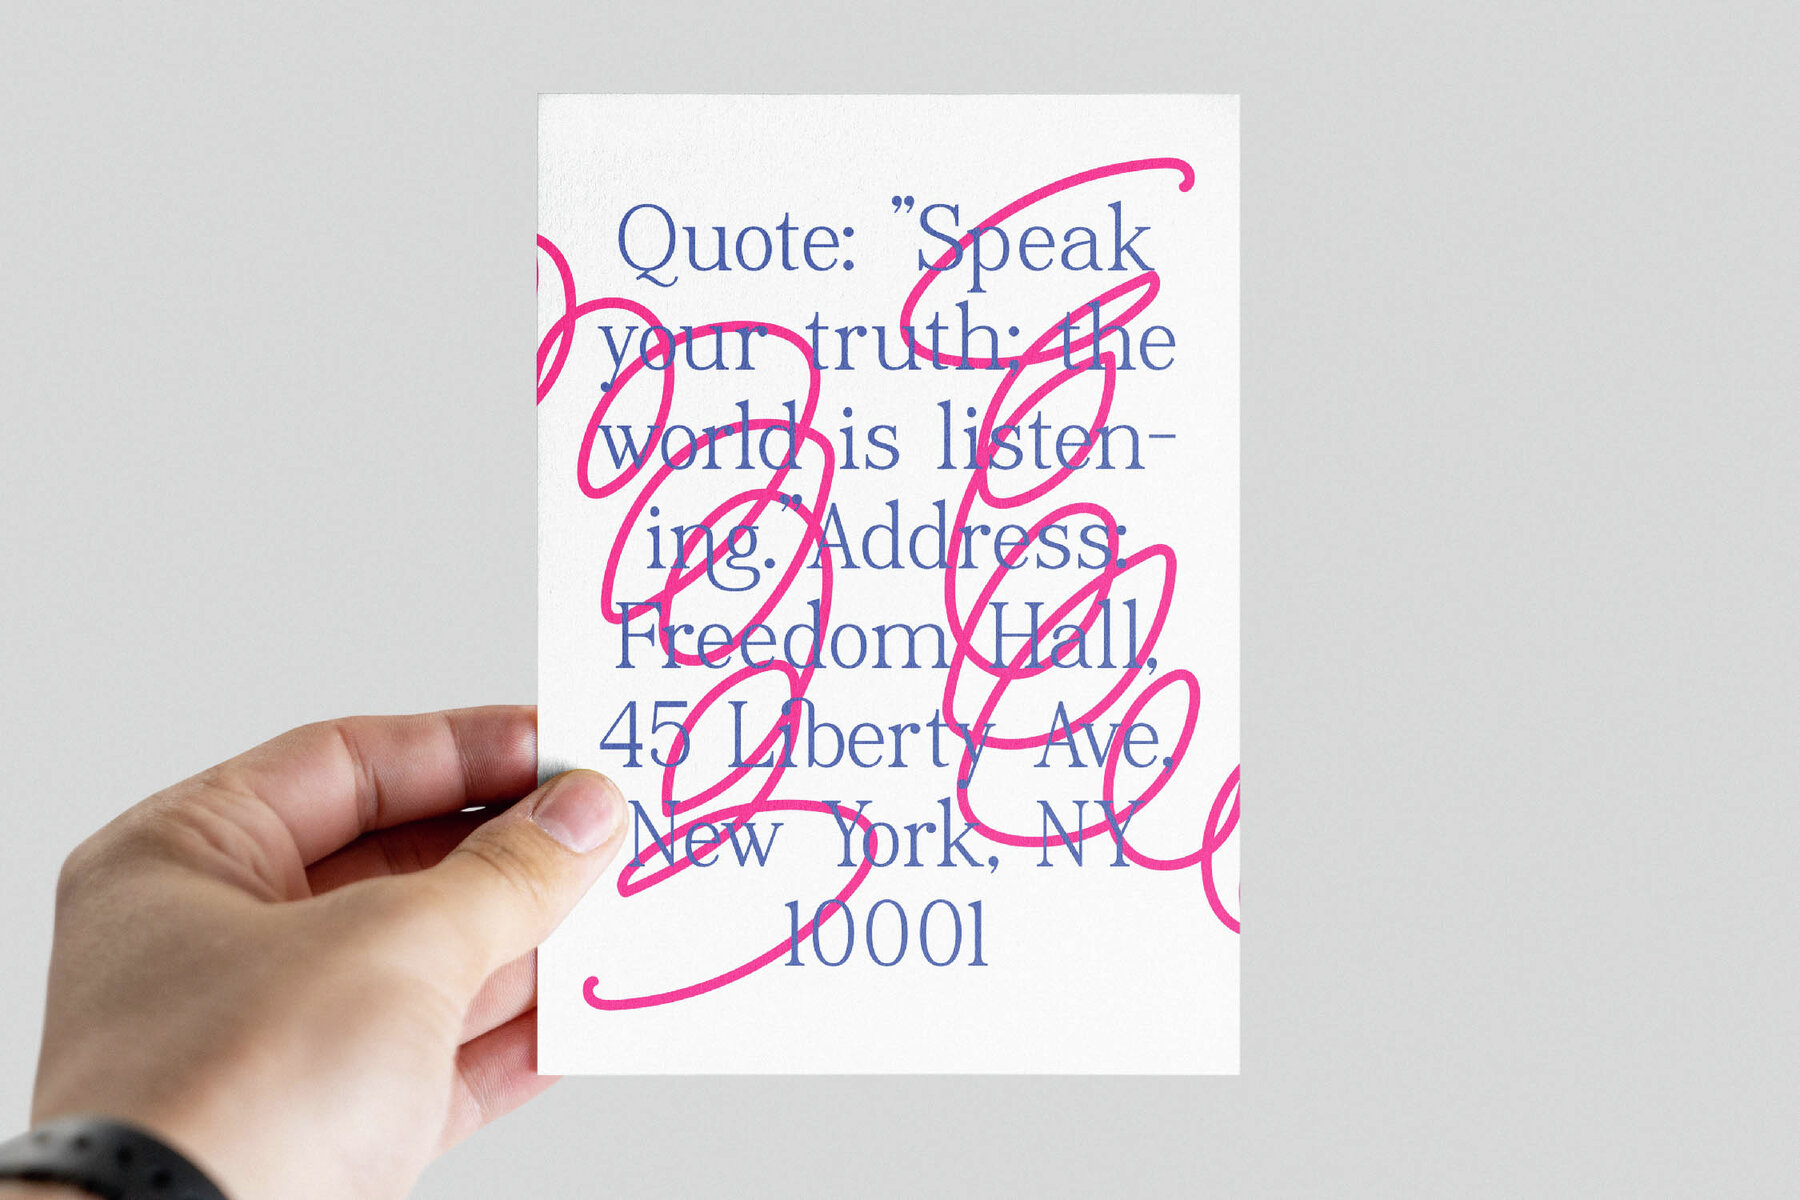 Quote: ”Speak
your truth; the
world is listen-
ing.” Address:
Freedom Hall,
45 Liberty Ave,
New York, NY
10001